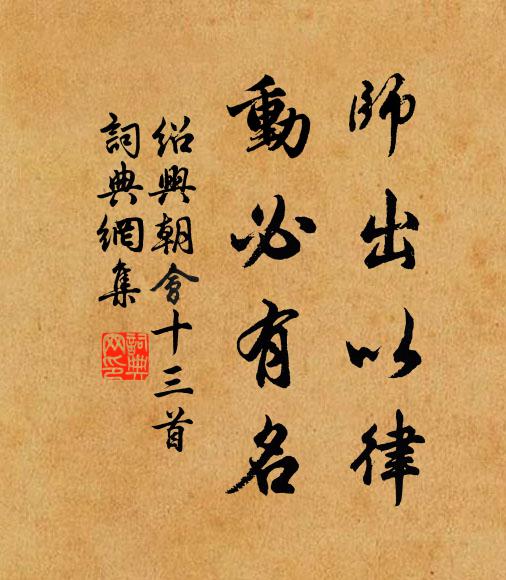 師出以律
動必有名
紹興朝會十三首
詞典網集
詞典網印